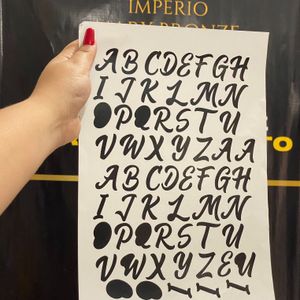 IMPERIO
BRONZE
ABCDEFGH
IJKLMN
OPQRSTU
VWXYZAA
ABCDEFGH
IJKLMN
OPQRSTU
VWXYZEU
III
TO